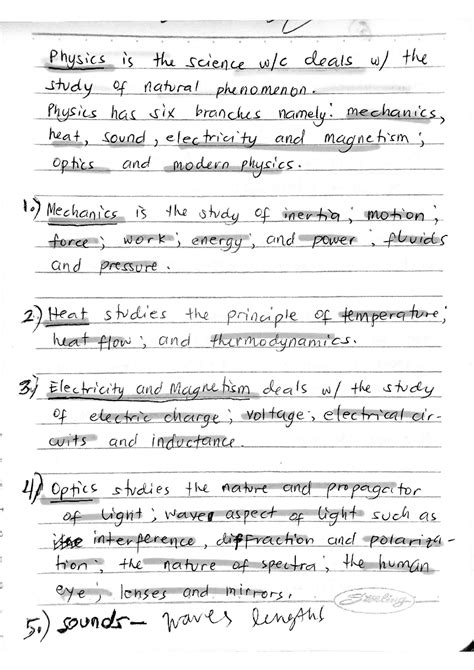 Physics is the science w/c deals w/ the
study of natural phenomenon.
Physics has six branches namely: mechanics,
heat, sound, electricity and magnetism;
optics and modern physics.
1.) Mechanics is the study of inertia; motion;
force; work; energy; and power; fluids
and pressure.
2.) Heat studies the principle of temperature;
heat flow; and thermodynamics.
3.) Electricity and Magnetism deals w/ the study
of electric charge; voltage; electrical cir-
cuits and inductance.
4.) Optics studies the nature and propagator
of light; waver aspect of light such as
interference, diffraction and polariza-
tion; the nature of spectra; the human
eye; lenses and mirrors.
5.) sounds - waves lengths
Sterling